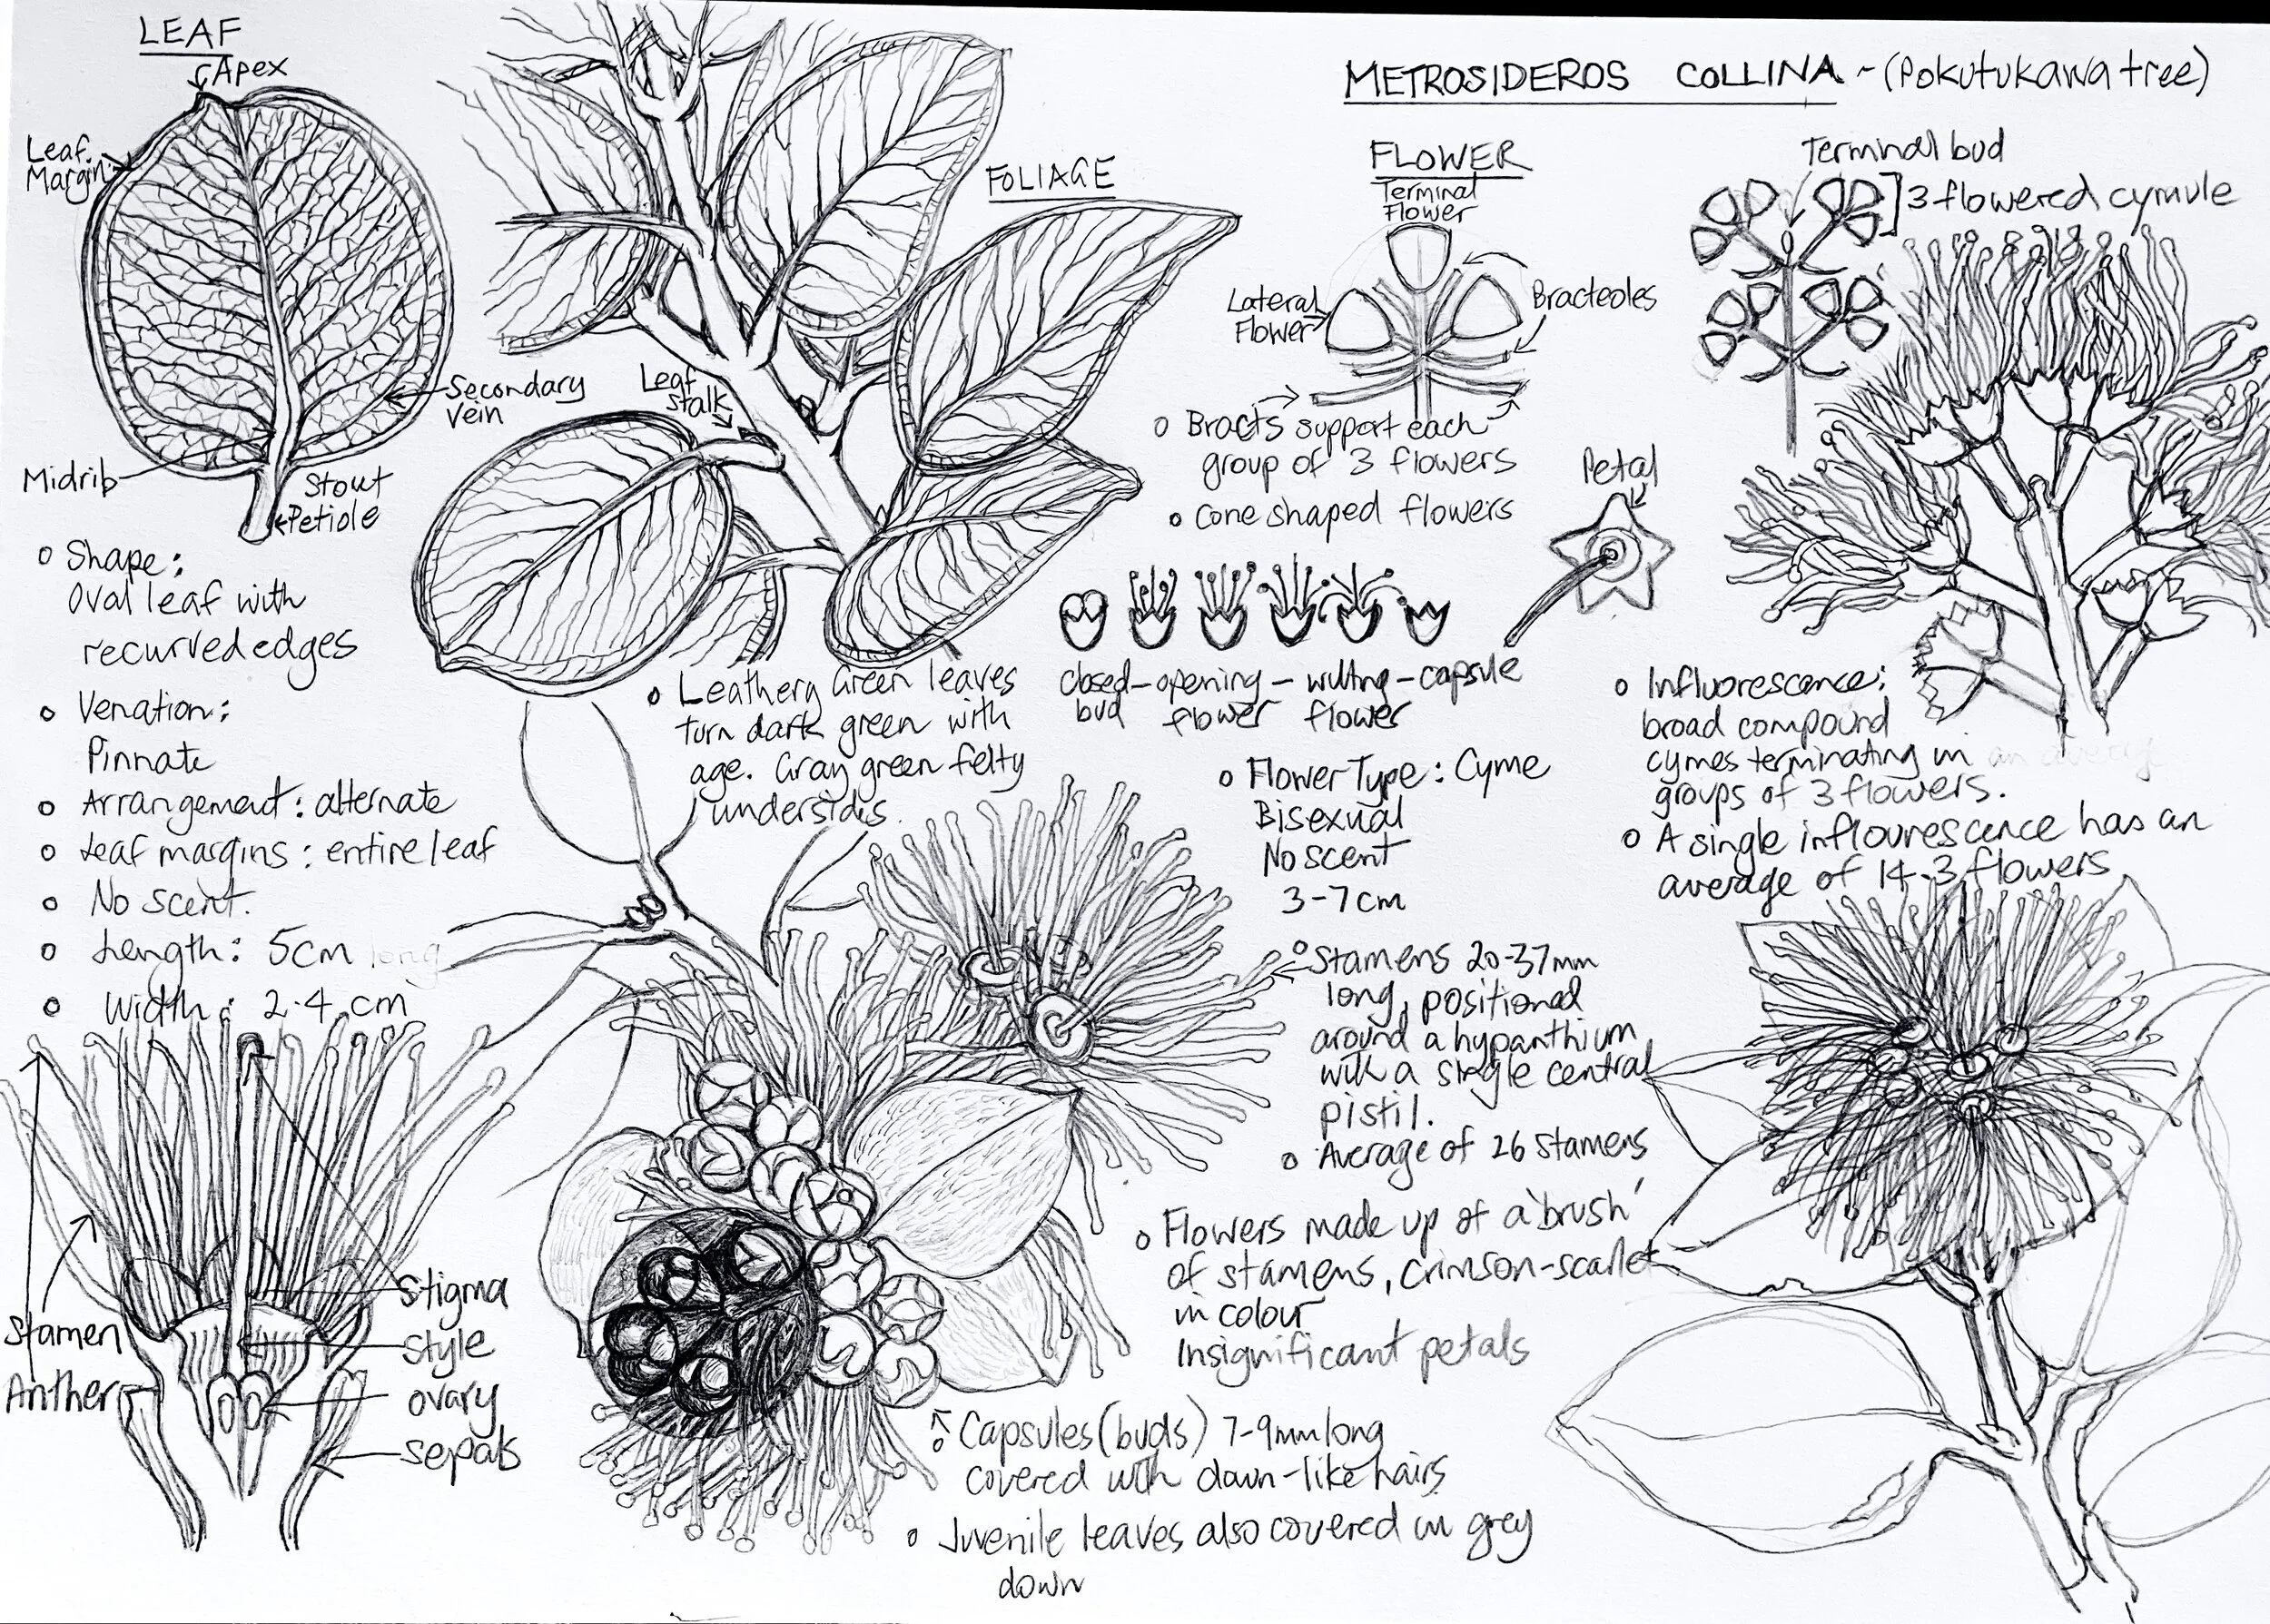 LEAF
Apex
Leaf
Margin
Secondary
vein
Midrib
Stout
Petiole
o Shape:
Oval leaf with
recurved edges
o Venation:
Pinnate
o Arrangement: alternate
o Leaf margins: entire leaf
o No scent.
o Length: 5cm long
o Width: 2.4 cm
Stamen
Anther
Stigma
style
ovary
sepals
FOLIAGE
Leaf
stalk
o Leathery Green leaves
turn dark green with
age. Gray green felty
undersides.
METROSIDEROS COLLINA - (Pokutukawa tree)
FLOWER
Terminal
Flower
Lateral
Flower
Bracteoles
o Bracts support each
group of 3 flowers
o Cone shaped flowers
Petal
closed - opening - wilting - capsule
bud flower flower
o Flower Type: Cyme
Bisexual
No scent
3-7cm
o Stamens 20-37mm
long, positional
around a hypanthium
with a single central
pistil.
o Average of 26 stamens
o Flowers made up of a 'brush'
of stamens, crimson-scarlet
in colour
Insignificant petals
o Capsules (buds) 7-9mm long
covered with down-like hairs
o Juvenile leaves also covered in grey
down
Terminal bud
3 flowered cymule
o Influorescence:
broad compound
cymes terminating in
groups of 3 flowers.
o A single inflourescence has an
average of 14.3 flowers